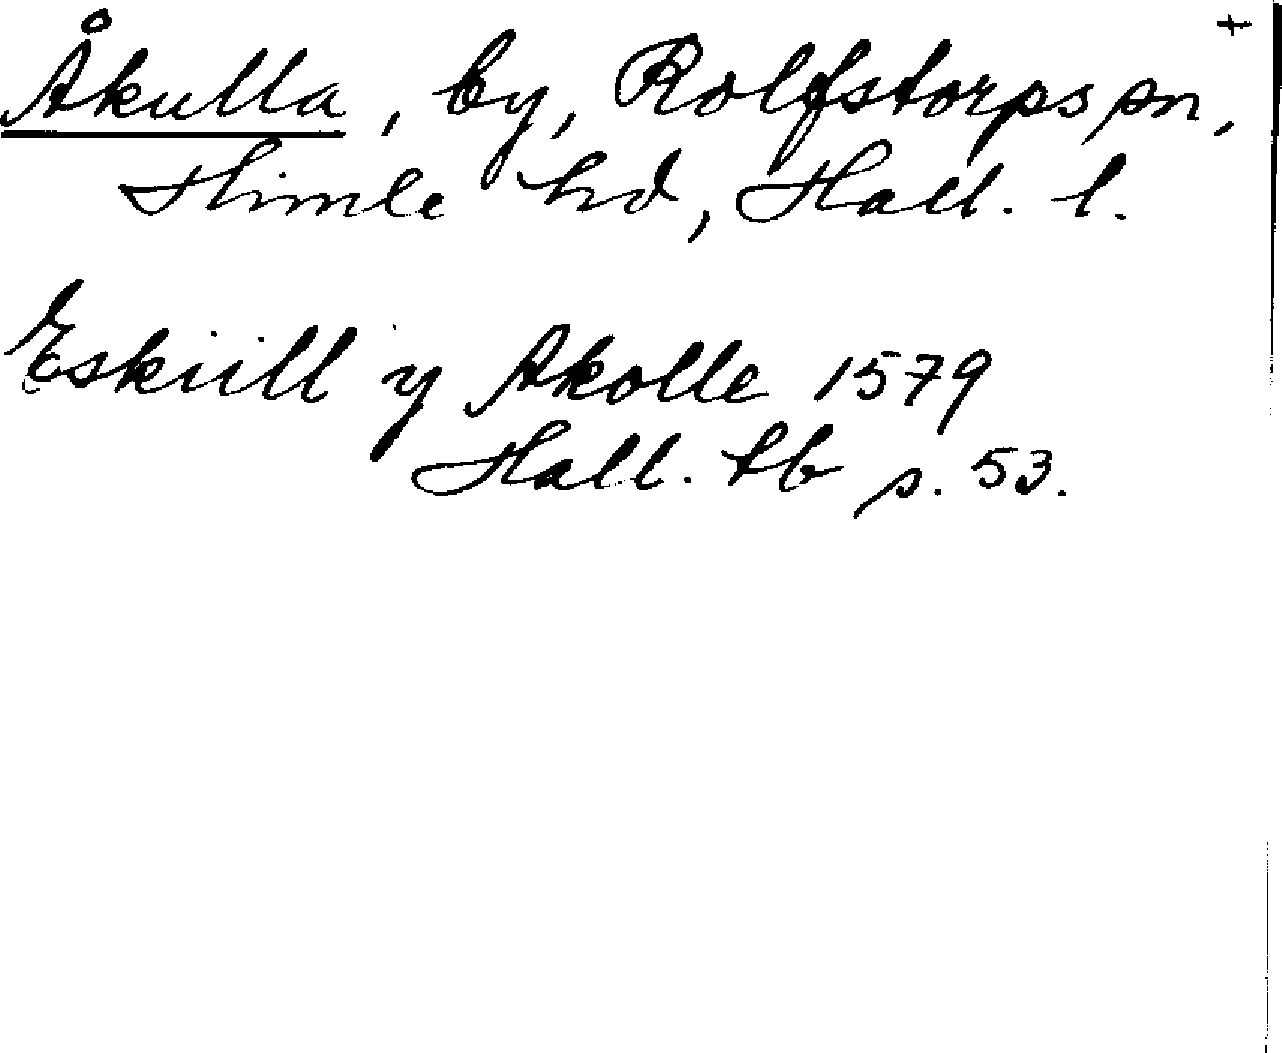 +
Åkulla, by, Rolfstorps sn,
Himle hd, Hall. l.
Eskiill y Akolle 1579
Hall. tb s. 53.